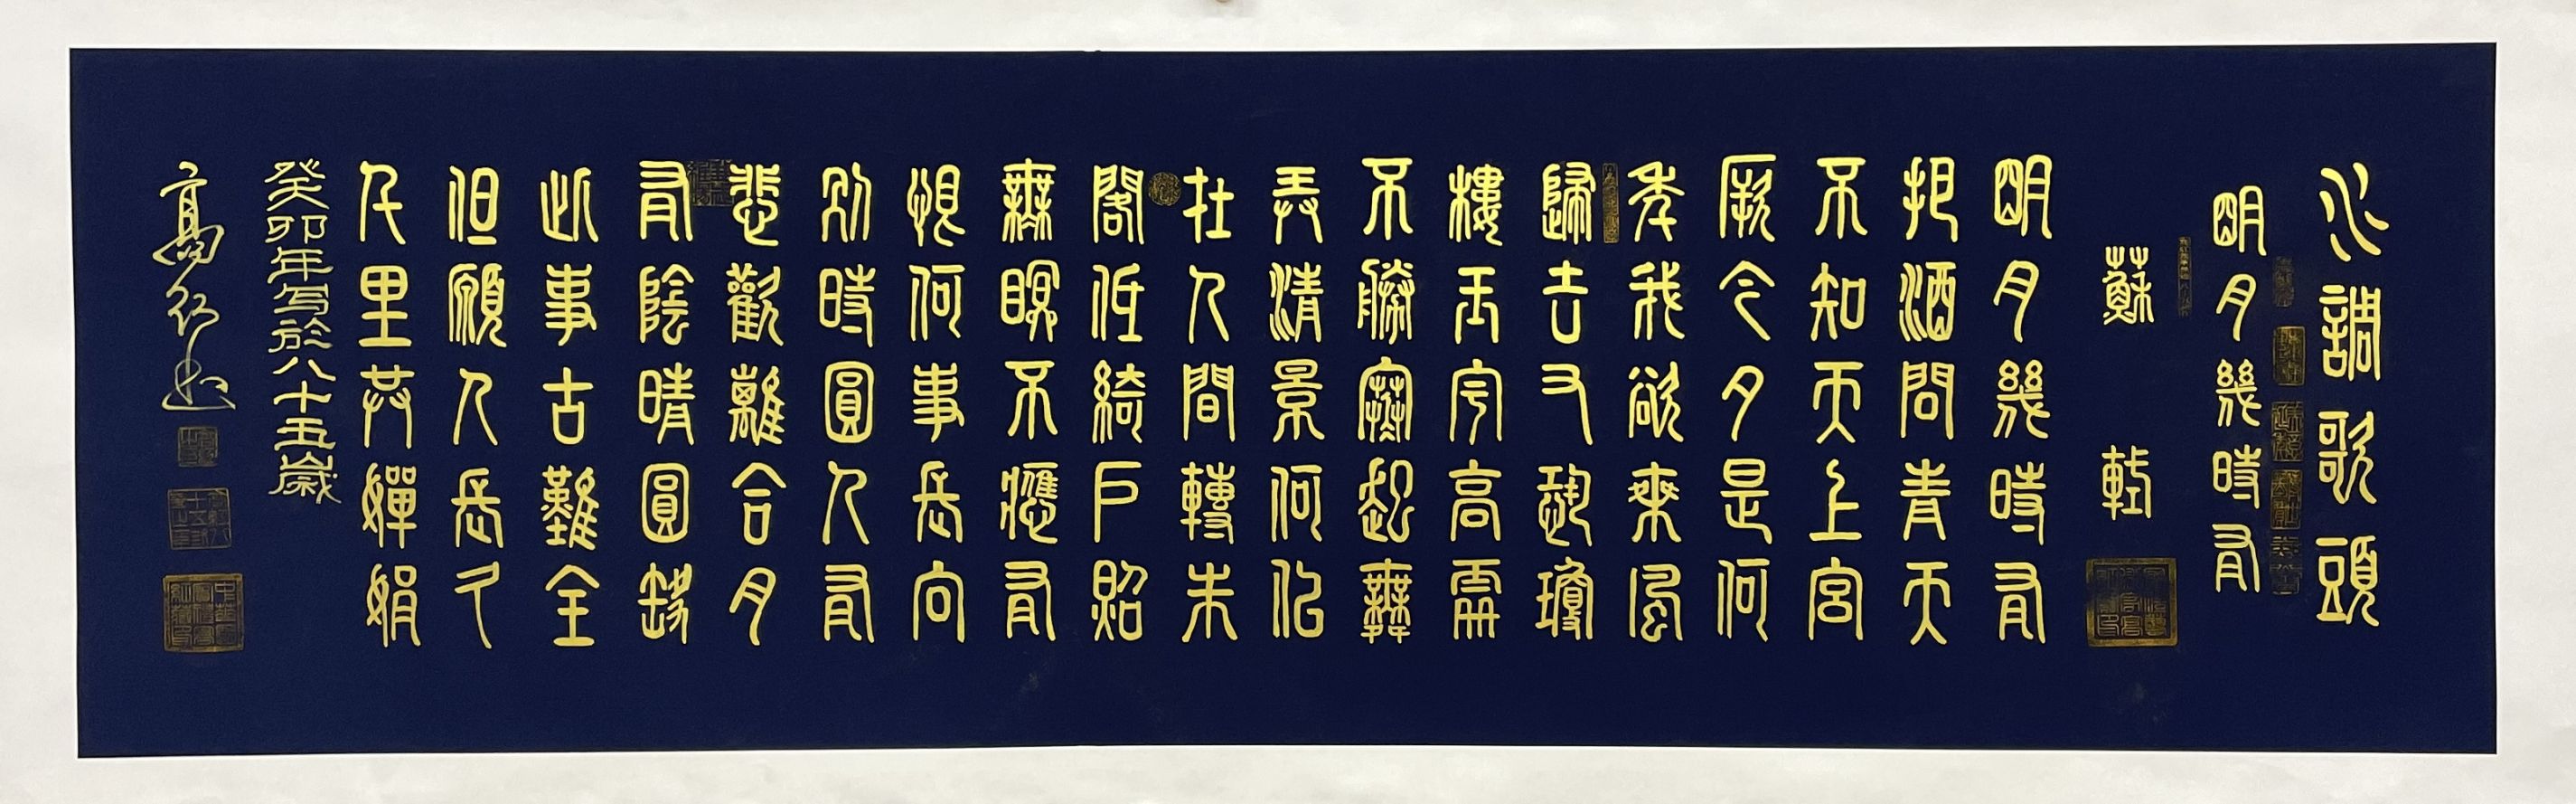 水調歌頭
明月幾時有
蘇軾
明月幾時有
把酒問青天
不知天上宮
厥今夕是何
年我欲乘風
歸去又恐瓊
樓玉宇高
不勝寒起舞
弄清景何似
在人間轉朱
閣低綺戶照
無眠不應有
恨何事長向
別時圓人有
悲歡離合月
有陰晴圓缺
此事古難全
但願人長久
千里共嬋娟
癸卯年写於八十五歲
高